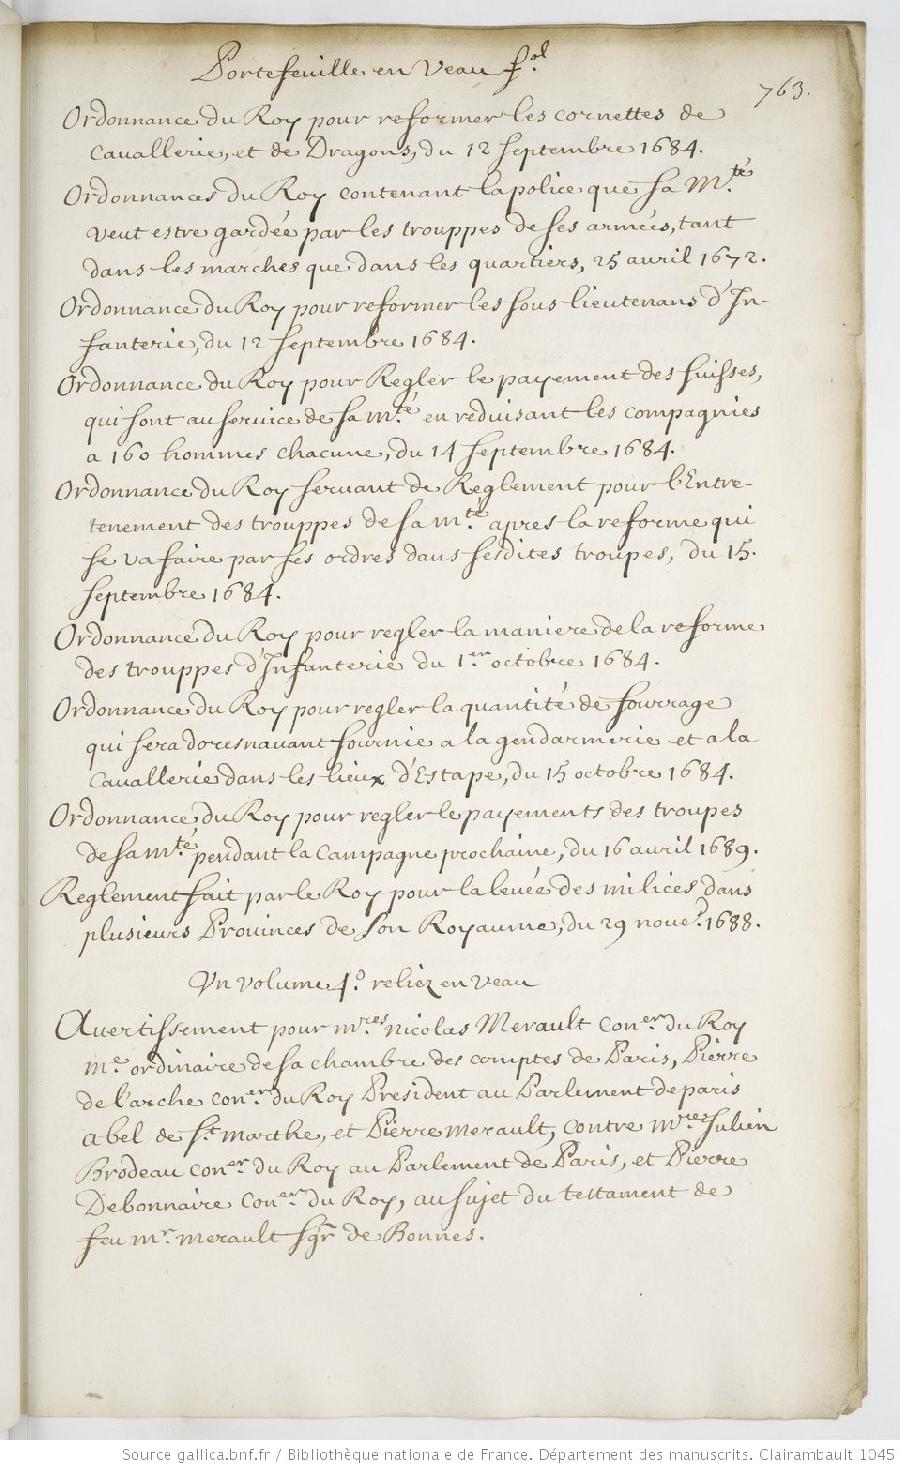 Portefeuille en veau f.ol
763.
Ordonnance du Roy pour reformer les cornettes de
cavallerie, et de Dragons, du 12 septembre 1684.
Ordonnances du Roy contenant la police que sa M.té
veut estre gardée par les trouppes de ses armées, tant
dans les marches que dans les quartiers, 25 avril 1672.
Ordonnance du Roy pour reformer les sous lieutenans d'In-
fanterie, du 12 septembre 1684.
Ordonnance du Roy pour Regler le payement des suisses,
qui sont au service de sa m.té en reduisant les compagnies
a 160 hommes chacune, du 14 septembre 1684.
Ordonnance du Roy servant de Reglement pour l'Entre-
tenement des trouppes de sa m.té apres la reforme qui
se va faire par ses ordres dans sesdites troupes, du 15.
septembre 1684.
Ordonnance du Roy pour regler la maniere de la reforme
des trouppes d'Infanterie du 1.er octobre 1684.
Ordonnance du Roy pour regler la quantité de fourrage
qui sera doresnavant fournie a la gendarmerie et a la
cavallerie dans les lieux d'Estape, du 15 octobre 1684.
Ordonnance du Roy pour regler le payements des troupes
de sa m.té pendant la campagne prochaine, du 16 avril 1689.
Reglement fait par le Roy pour la levée des milices dans
plusieurs Provinces de son Royaume, du 29 nove.? 1688.
Vn volume 4.o reliez en veau
Avertissement pour m.res nicolas Merault con.er du Roy
m.e ordinaire de sa chambre des comptes de Paris, Pierre
de l'arche con.er du Roy President au Parlement de paris
abel de s.t marthe, et Pierre merault, contre m.res Julien
Brodeau con.er du Roy au Parlement de Paris, et Pierre
Debonnaire con.er du Roy, au sujet du testament de
feu m.r merault sgr de Bonnes.
Source gallica.bnf.fr / Bibliothèque nationale de France. Département des manuscrits. Clairambault 1045